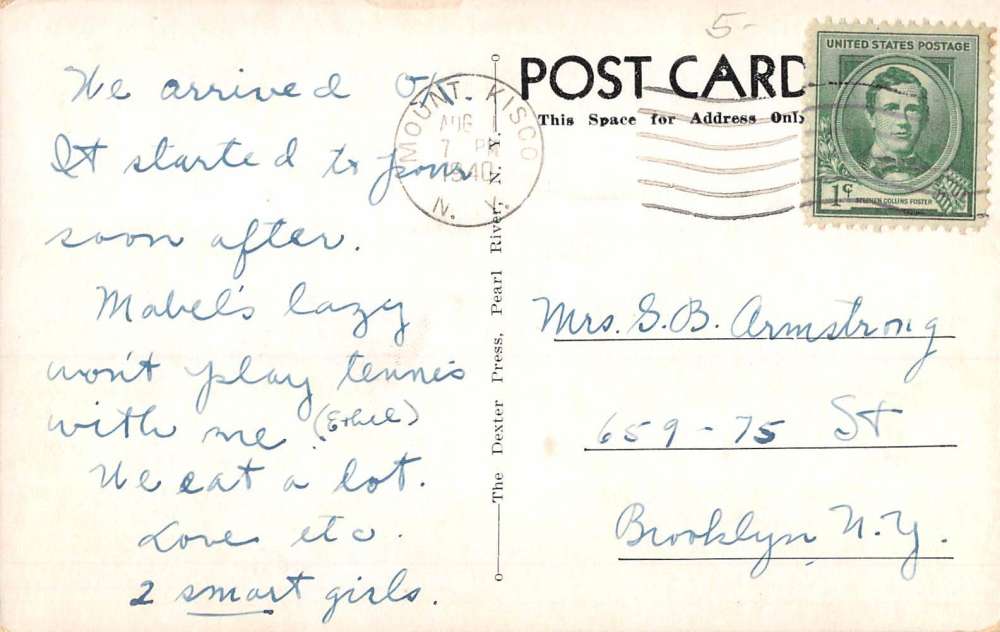 We arrived O.K.
It started to pour
soon after.
Mabel's lazy
won't play tennis
with me (Ethel)
We eat a lot.
Love etc.
2 smart girls.
o—The Dexter Press, Pearl River, N. Y.—o
5-
POST CARD
This Space for Address Only
MOUNT KISCO
AUG
7 PM
1940
N. Y.
UNITED STATES POSTAGE
1¢
STEPHEN COLLINS FOSTER
Mrs. G. B. Armstrong
659-75 St
Brooklyn, N.Y.